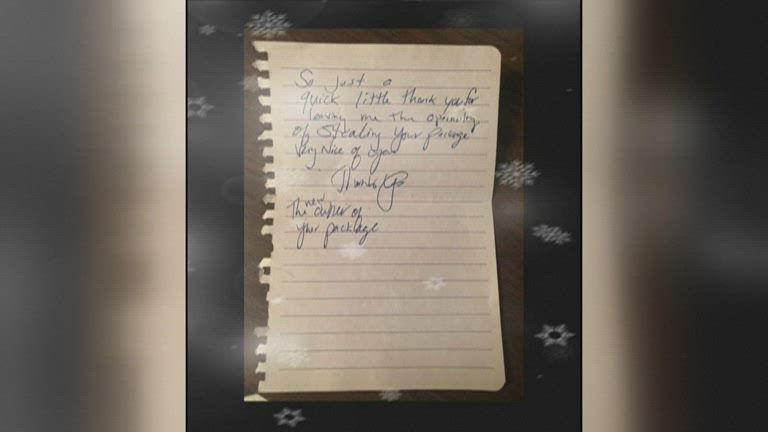 So Just a
quick little thank you for
leaving me the oppertunity
of Stealing Your Package
Very Nice of you
Thanks
The new owner of
your package